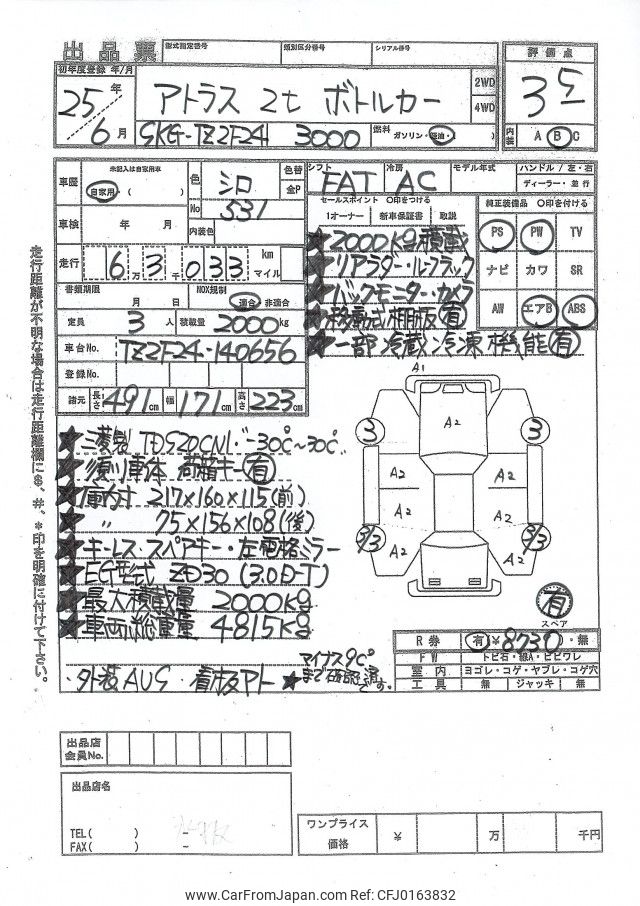 出品票
型式指定番号 類別区分番号 シリアル番号
評価点
3 5
内装 A B C
初年度登録 年/月
25年
6月
アトラス 2t ボトルカー
2WD
4WD
SKG-TZ2F24 3000
燃料 ガソリン・軽油・( )
車歴
未記入は自家用車
自家用・( )
色 シロ
色替
全P
No 531
車検 年 月
内装色
走行 6万 3千 033 km マイル
書類期限 月 日
NOX規制 適合・非適合
定員 3人 積載量 2000kg
車台No. TZ2F24-140656
登録No.
諸元 長さ 491cm 幅 171cm 高さ 223cm
シフト FAT
冷房 AC
モデル年式
ハンドル / 左・右
ディーラー・並行
セールスポイント ○印をつける
1オーナー 新車保証書 取説
★2000kg積載
★リアラダー・ルーフラック
★バックモニター・カメラ
★移動式棚板 有
★一部冷蔵冷凍機能 有
純正装備品 ○印を付ける
PS PW TV
ナビ カワ SR
AW エアB ABS
走行距離が不明な場合は走行距離欄に$、#、*印を明確に付けて下さい。
★三菱製 TDS20CN1・-30℃~30℃
★須川車体 荷箱キー 有
★庫内寸 217×160×115(前)
★ 〃 75×156×108(後)
★キーレス・スペアキー・左電格ミラー
★EG型式 ZD30 (3.0D-T)
★最大積載量 2000kg
★車両総重量 4815kg
・外装AUS・看板アト
★マイナス9℃
まで確認済です。
A1
A2
3 3
A2 A2
A2 A2
3/3 A2 A2 3/3
有
スペア
R券 有 ¥8730・無
FW トビ石・線A・ヒビワレ
室内 ヨゴレ・コゲ・ヤブレ・コゲ穴
工具 無 ジャッキ 無
出品店
会員No.
出品店名
TEL( ) -
FAX( ) -
ワンプライス
価格
¥ 万 千円
www.CarFromJapan.com Ref: CFJ0163832